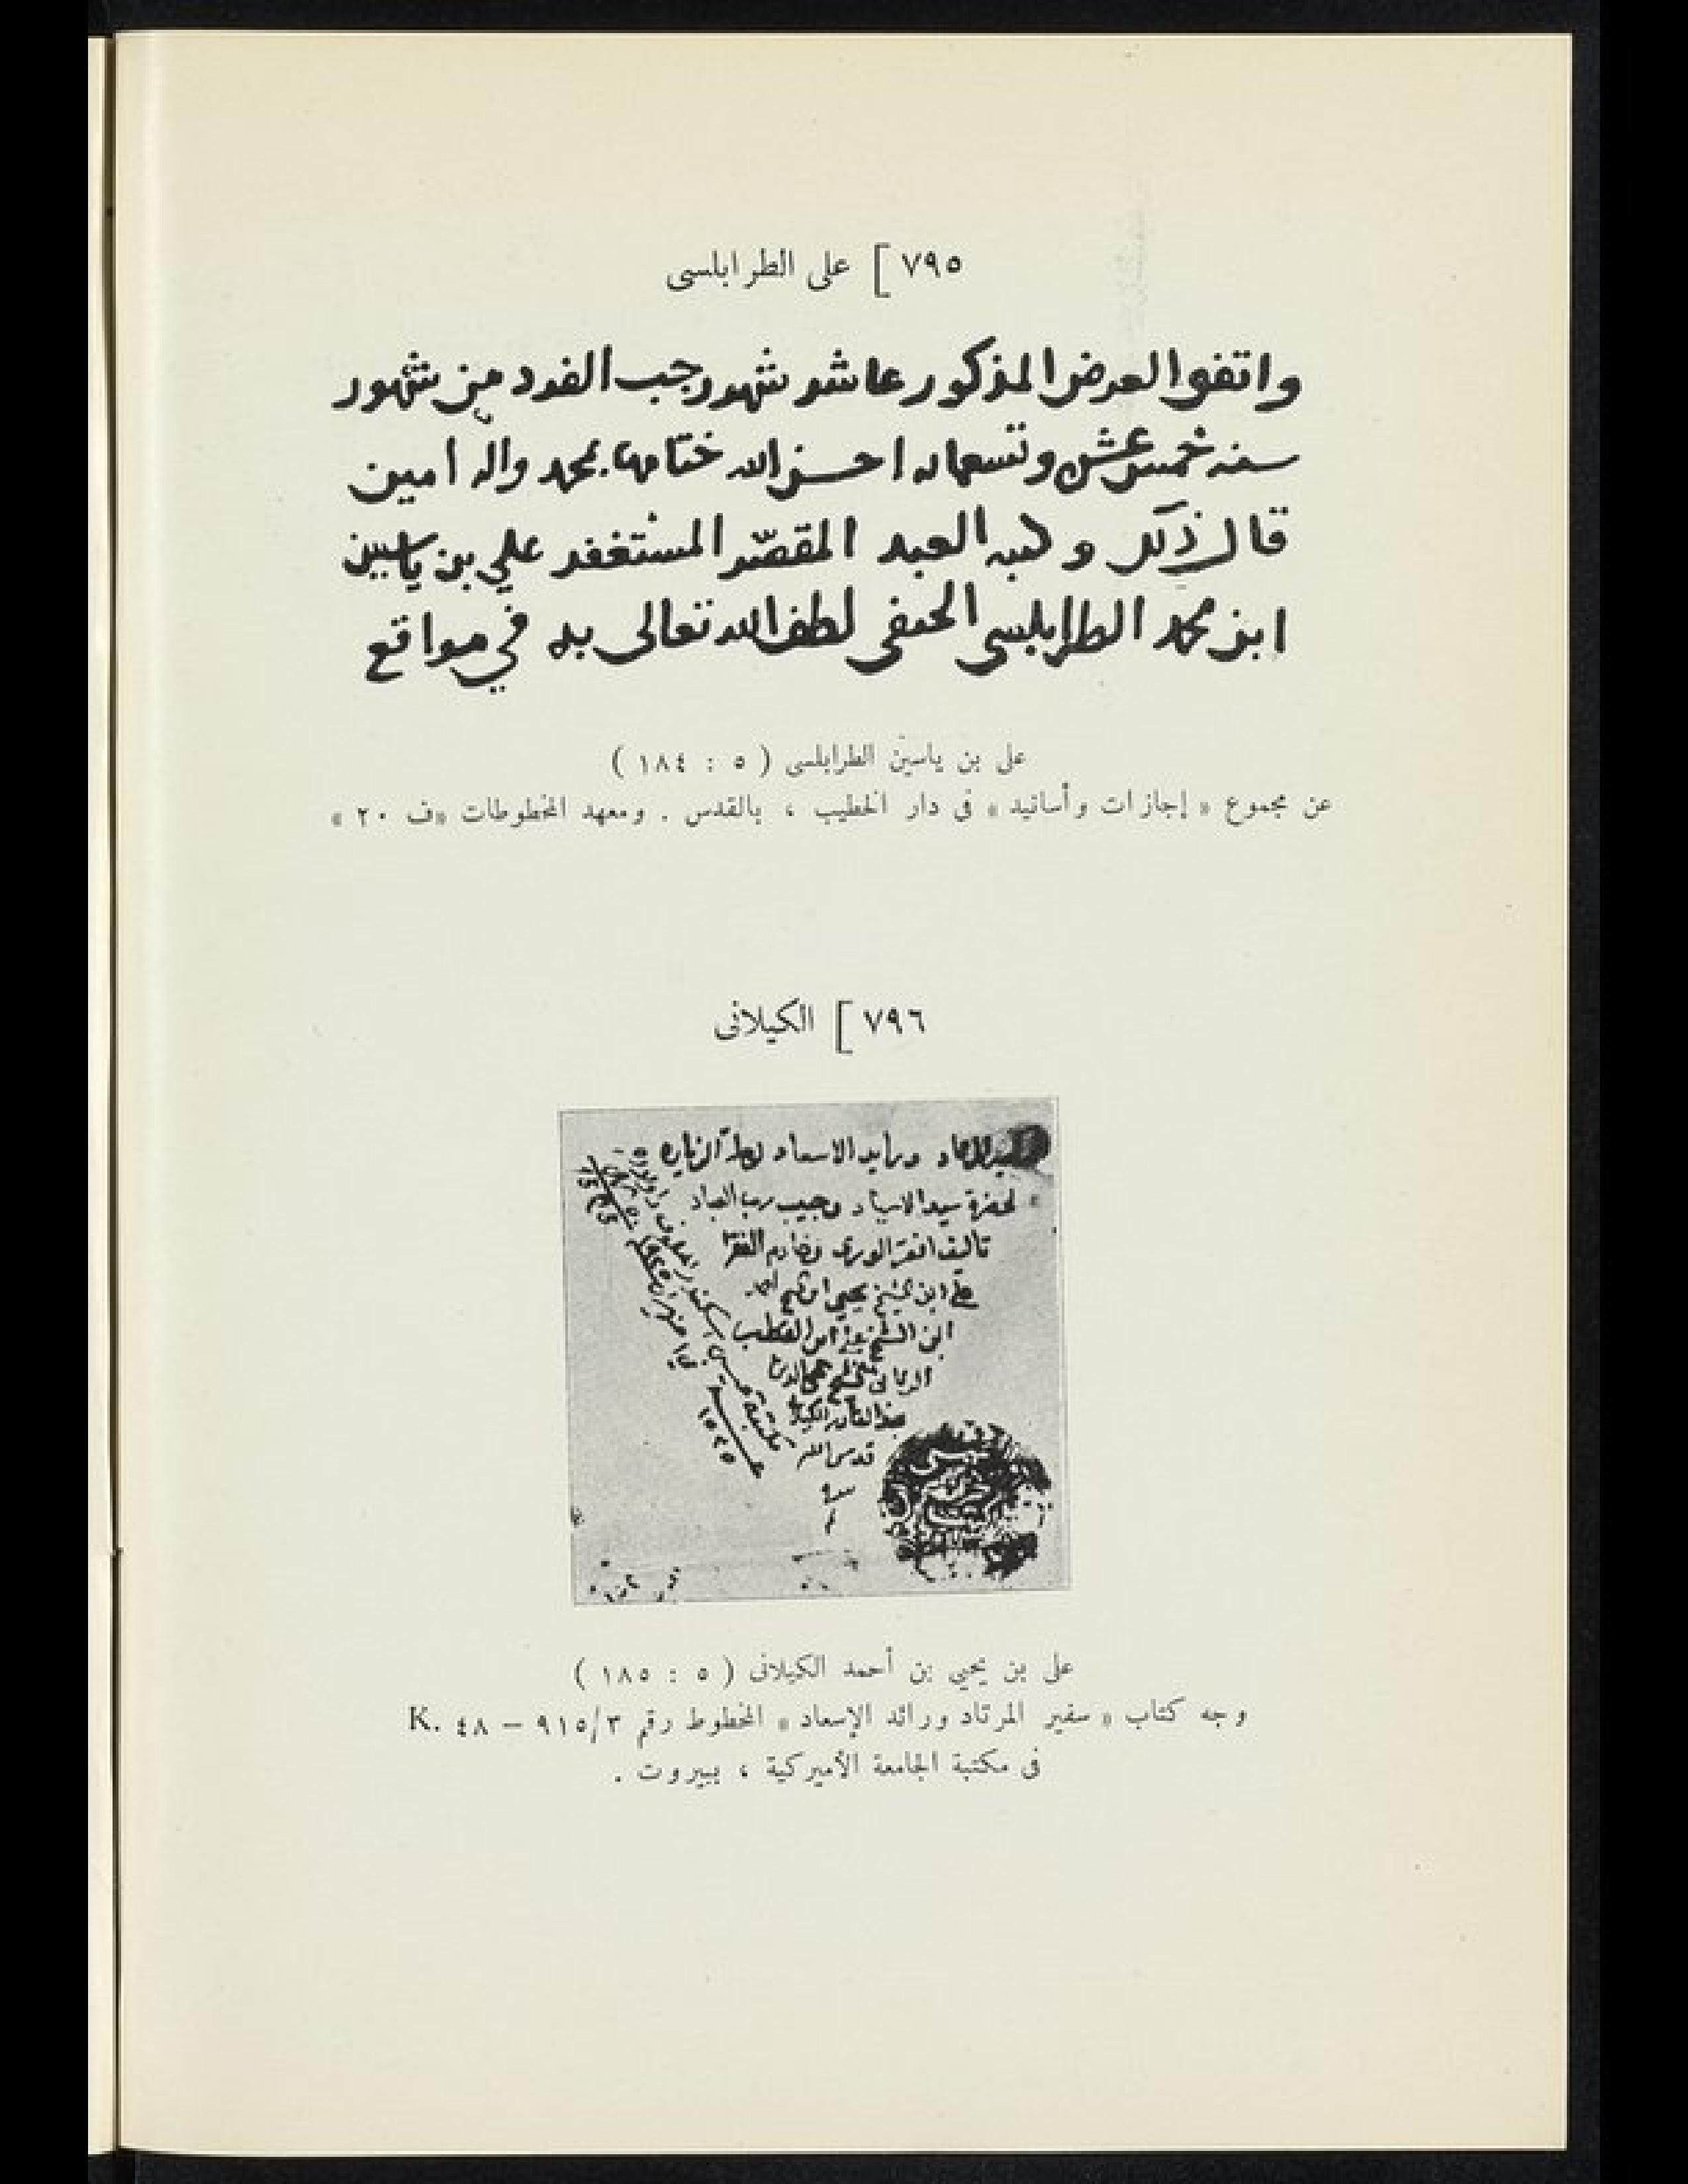 ٧٩٥ ] على الطرابلسى
واتفق العرض المذكور عاشر شهر رجب الفرد من شهور
سنه خمس عشر وتسعمايه احسن الله ختامها بمحمد واله امين
قال ذلك وكتبه العبد المقصّر المستغفر علي بن ياسين
ابن محمد الطرابلسي الحنفي لطف الله تعالى به في مواقع
على بن ياسين الطرابلسى ( ٥ : ١٨٤ )
عن مجموع « إجازات وأسانيد » فى دار الخطيب ، بالقدس . ومعهد المخطوطات «ف ٢٠ »
٧٩٦ ] الكيلانى
ورايد الاسعاد الزياره
لحضرة سيد الاسياد وحبيب رب العباد
تاليف افقر الورى وخادم الفقرا
علي ابن الشيخ يحيى ابن الشيخ احمد
ابن الشيخ القطب
الربانى
عبد القادر الكيلاني
قدس الله
سره
على بن يحيى بن أحمد الكيلانى ( ٥ : ١٨٥ )
وجه كتاب « سفير المرتاد ورائد الإسعاد » المخطوط رقم ٩١٥/٣ – ٤٨ .K
فى مكتبة الجامعة الأميركية ، ببيروت .